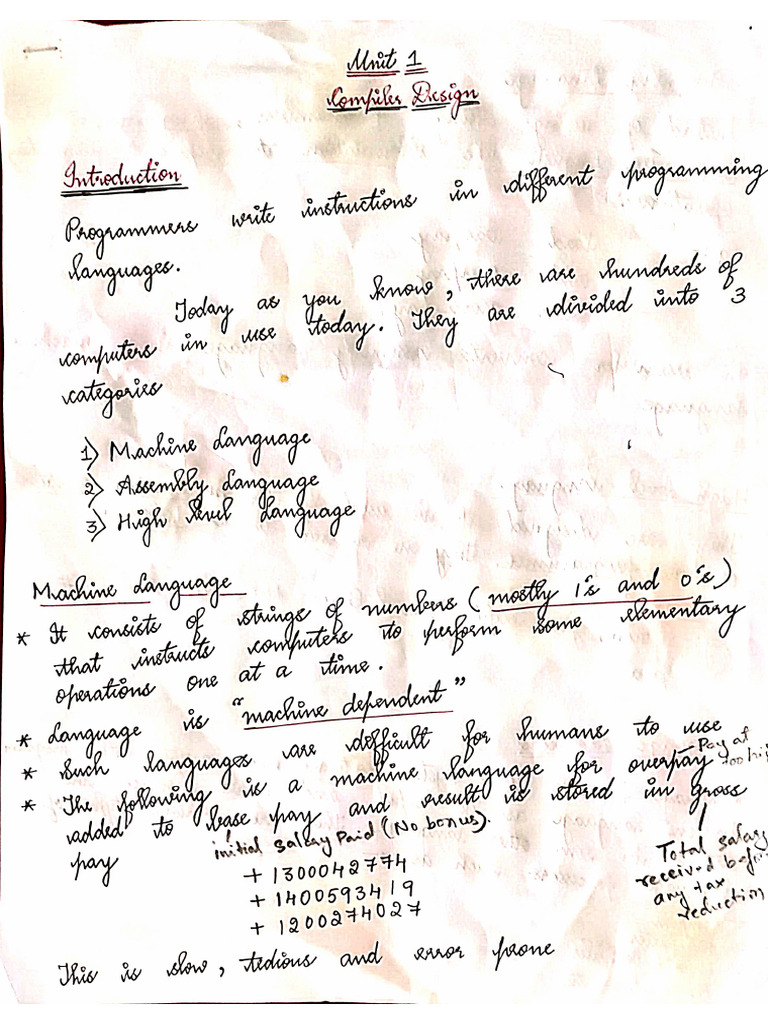 Unit 1
Compiler Design
Introduction
Programmers write instructions in different programming
languages.
Today as you know, there are hundreds of
computers in use today. They are divided into 3
categories
1) Machine Language
2) Assembly Language
3) High level Language
Machine Language
* It consists of strings of numbers (mostly 1's and 0's)
that instructs computers to perform some elementary
operations one at a time.
* Language is "machine dependent"
* Such languages are difficult for humans to use
* The following is a machine language for overpay
Pay at
too hi
added to base pay and result is stored in gross
pay
initial salary Paid (No bonus).
Total salary
received befor
any tax
reduction
+1300042774
+1400593419
+1200274027
This is slow, tedious and error prone